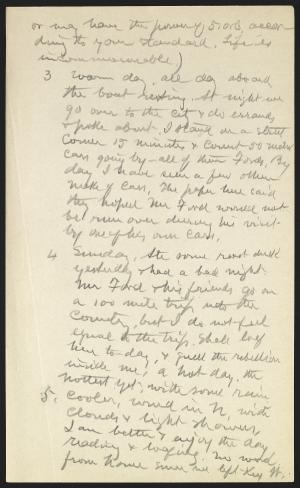 or may have the power of 5 or 6 accor
ding to your standard. Life is
incommensurable)
3 Warm day, all day aboard
the boat resting. At night we
go over to the city & do errands
& poke about. I stand on a street
corner 15 minutes & count 50 motor
cars going by - all of them Fords. By
day I have seen a few other
makes of cars. The paper here said
they hoped Mr Ford would not
be run over during his visit
by one of his own cars.
4 Sunday. Ate some roast duck
yesterday & had a bad night.
Mr Ford & his friends go on
a 100 mile trip into the
country, but I do not feel
equal to the trip. Shall loaf
here to day, & quell the rebellion
inside me; a hot day, the
hottest yet, with some rain
5. Cooler, wind in N, with
clouds & light showers,
I am better & enjoy the day
reading & loafing. No word
from home since we left Key W.